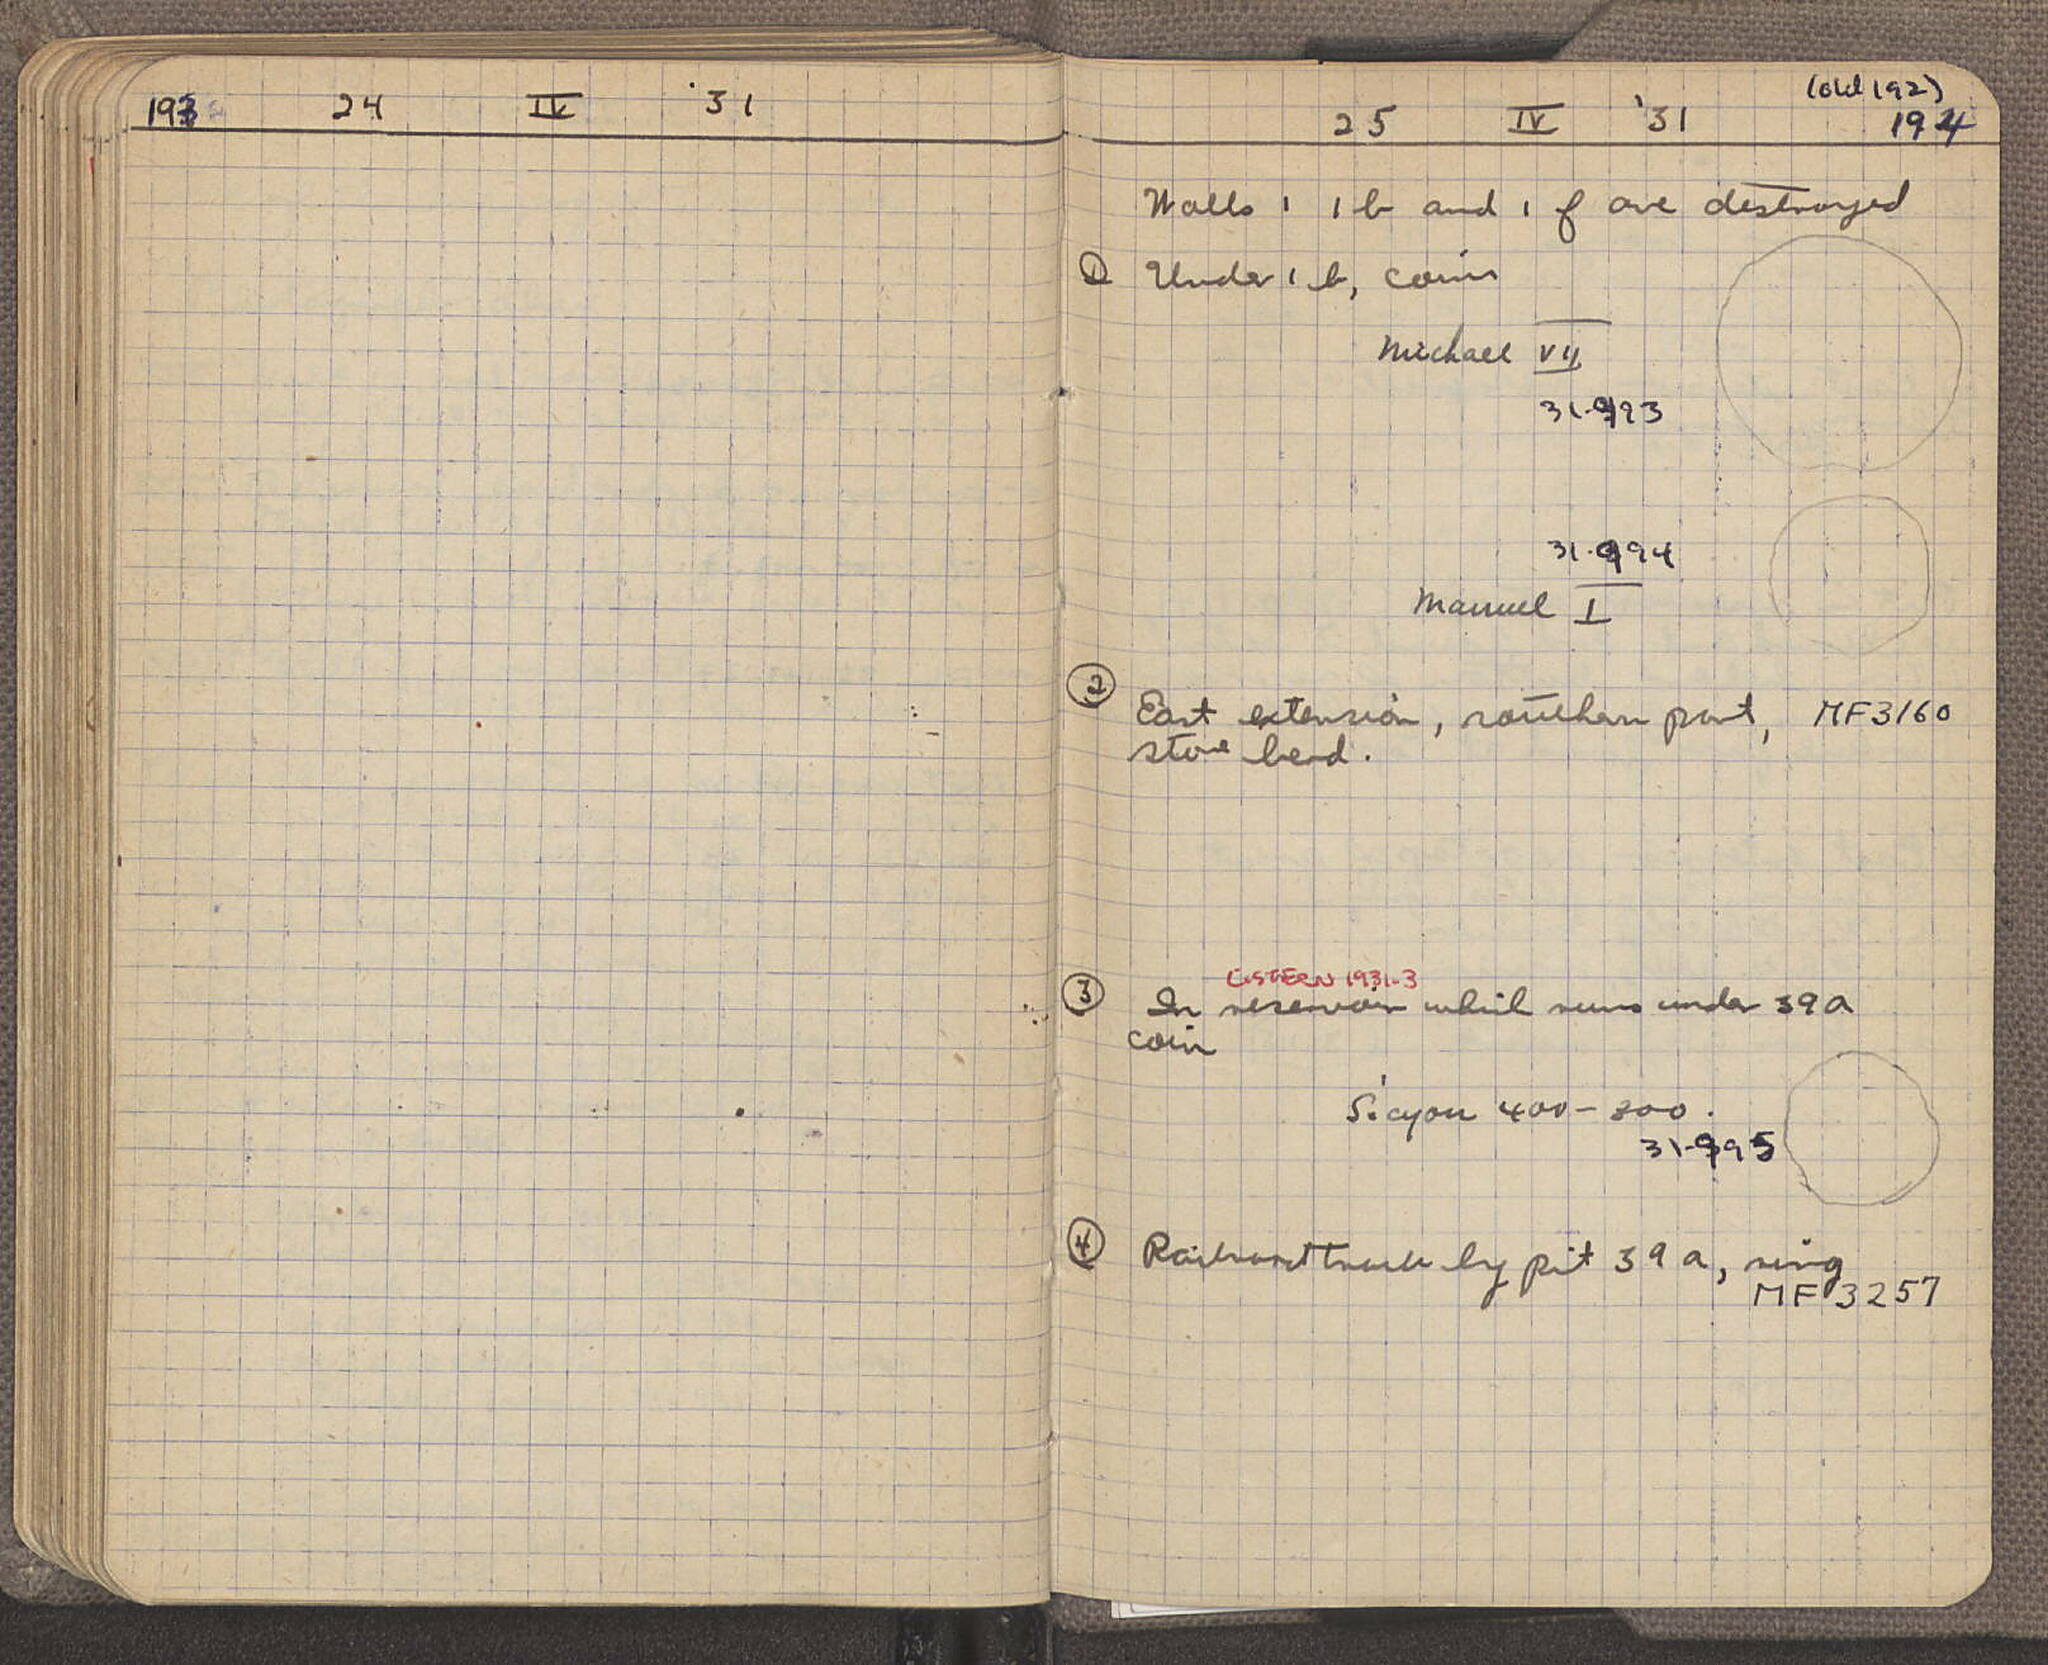 193 24 IV '31
(old 192)
25 IV '31 194
Walls 1 1 b and 1 f are destroyed
① Under 1 b, coins
Michael VII
31-993
31-994
Manuel I
② East extension, southern part, MF3160
stone bead.
CISTERN 1931-3
③ In reservoir which runs under 39a
coin
Sicyon 400-300.
31-995
④ Railroad track by pit 39a, ring
MF 3257